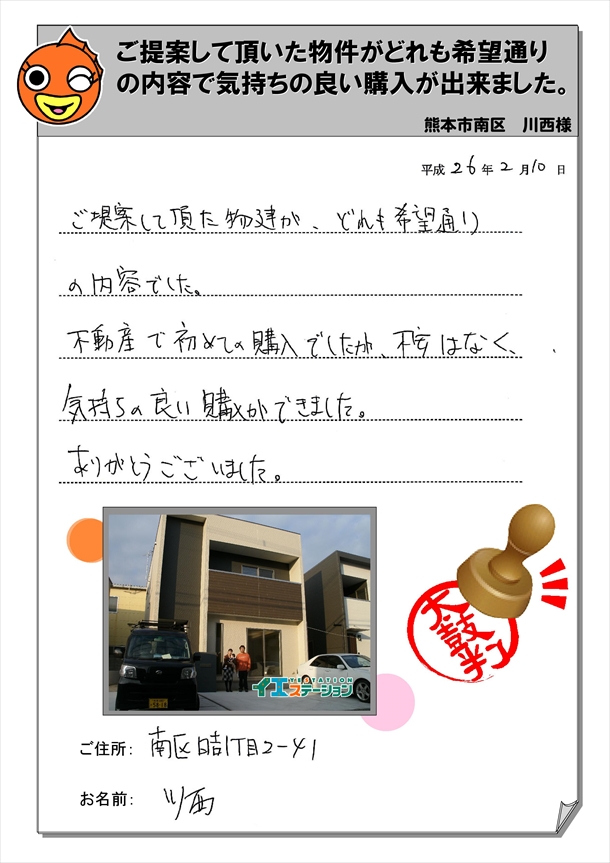 ご提案して頂いた物件がどれも希望通り
の内容で気持ちの良い購入が出来ました。
熊本市南区 川西様
平成26年2月10日
ご提案して頂た物建が、どれも希望通り
の内容でした。
不動産で初めての購入でしたが、不安はなく、
気持ちの良い購入ができました。
ありがとうございました。
YESTATION
イエステーション
太鼓判
ご住所: 南区日吉1丁目2-41
お名前: 川西